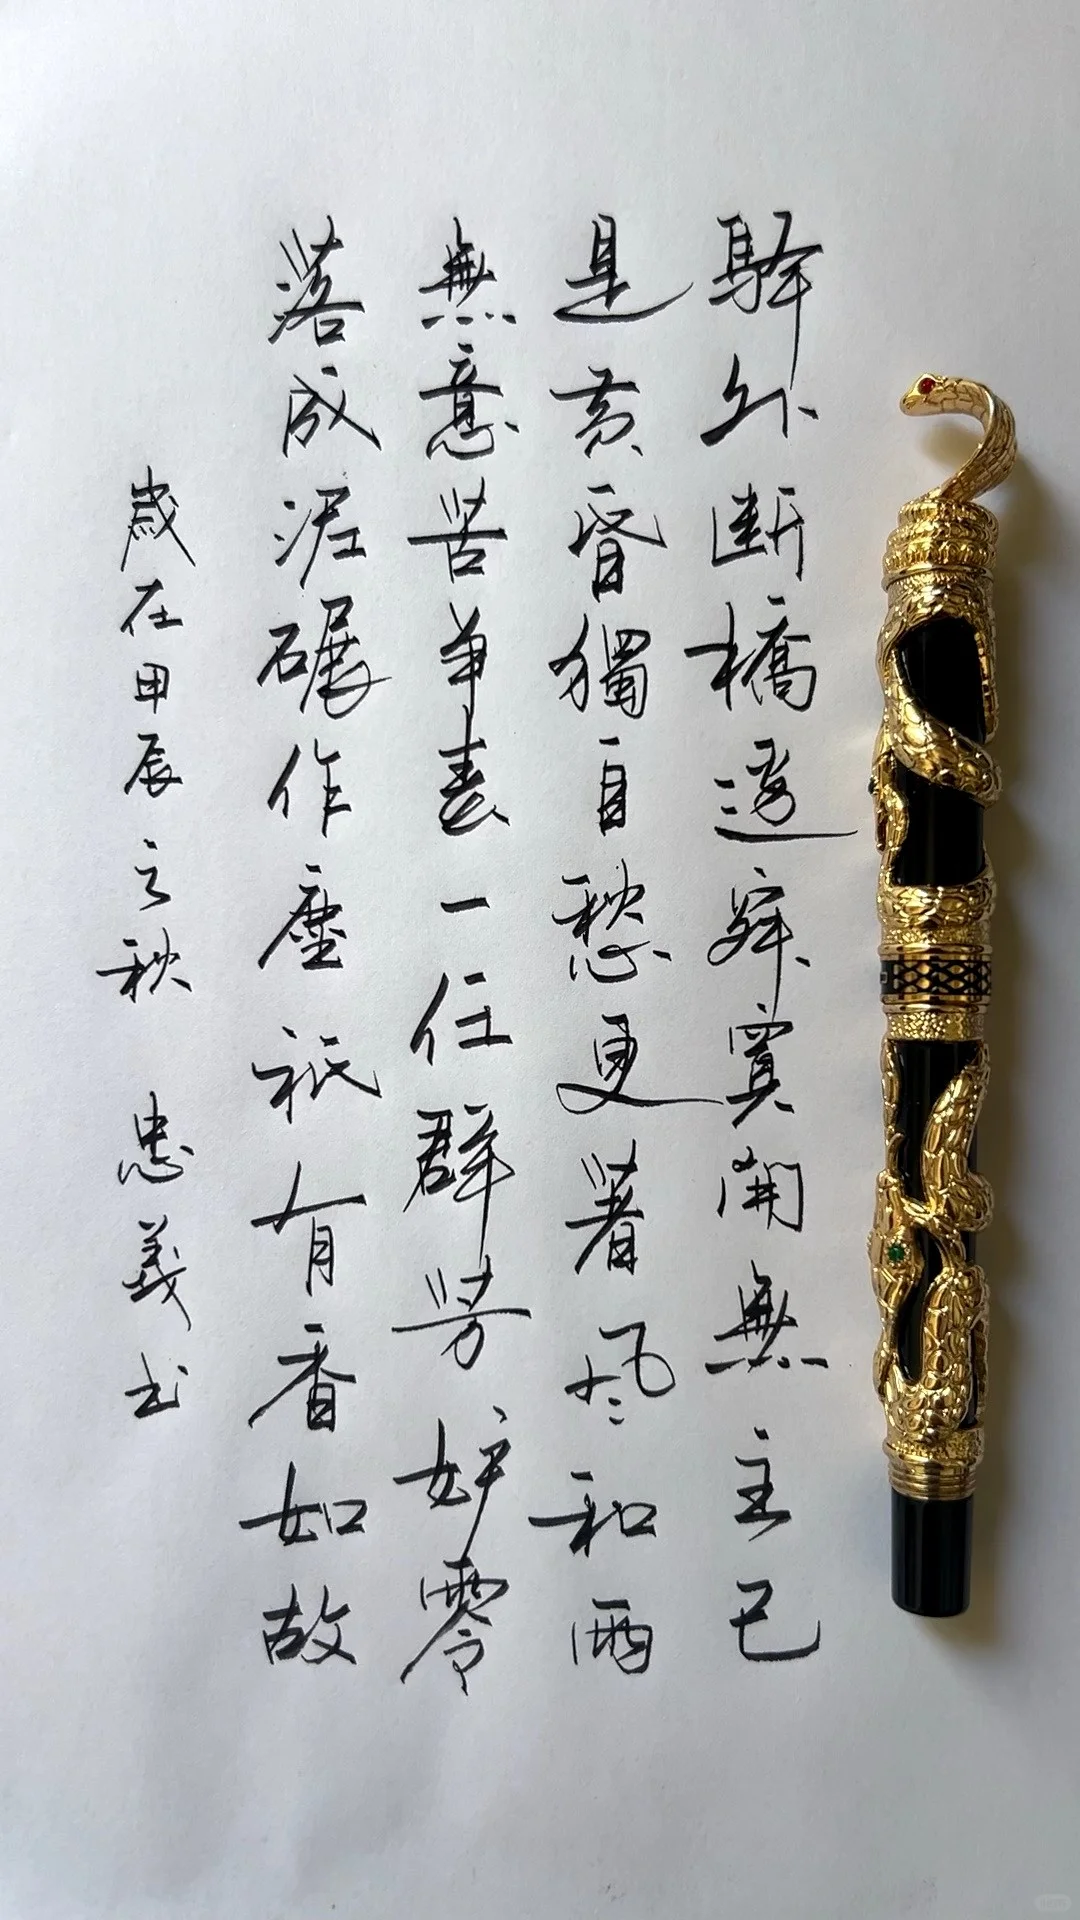 驛外断橋邊寂寞開無主已
是黄昏獨自愁更著風和雨
無意苦争春一任群芳妒零
落成泥碾作塵祇有香如故
歲在甲辰之秋 忠義书